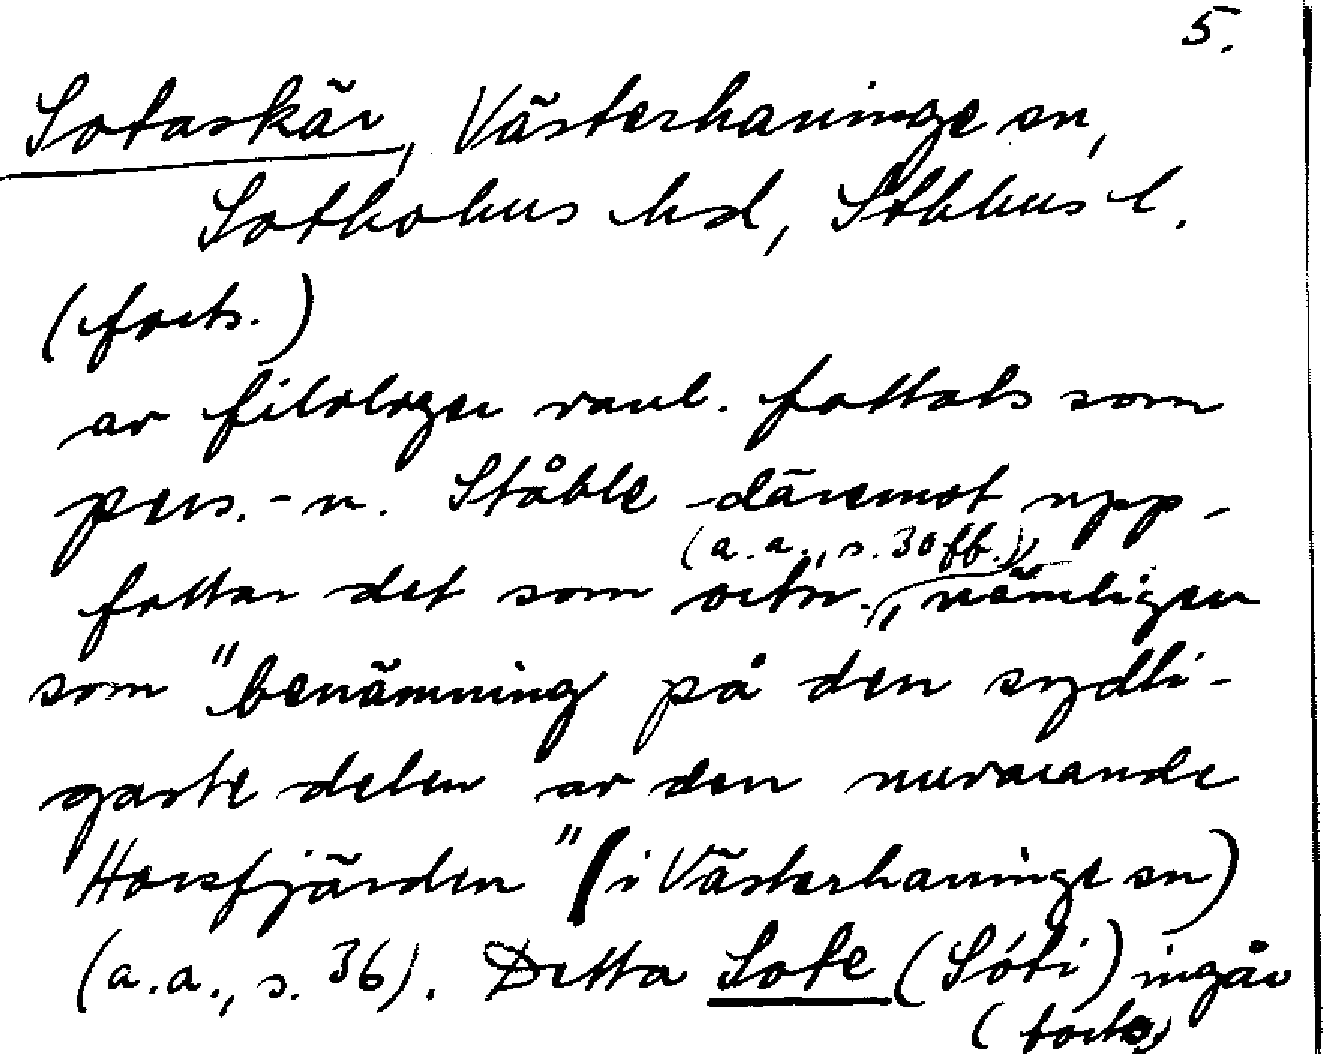 5.
Sotaskär, Västerhaninge sn,
Sotholms hd, Sthlms l.
(forts.)
av filologer vanl. fattats som
pers.-n. Ståhle däremot upp-
(a.a., s. 30 ff.),
fattar det som ortn., nämligen
som "benämning på den sydli-
gaste delen av den nuvarande
Horsfjärden" (i Västerhaninge sn)
(a.a., s. 36). Detta Sote (Sóti) ingår
(forts.)